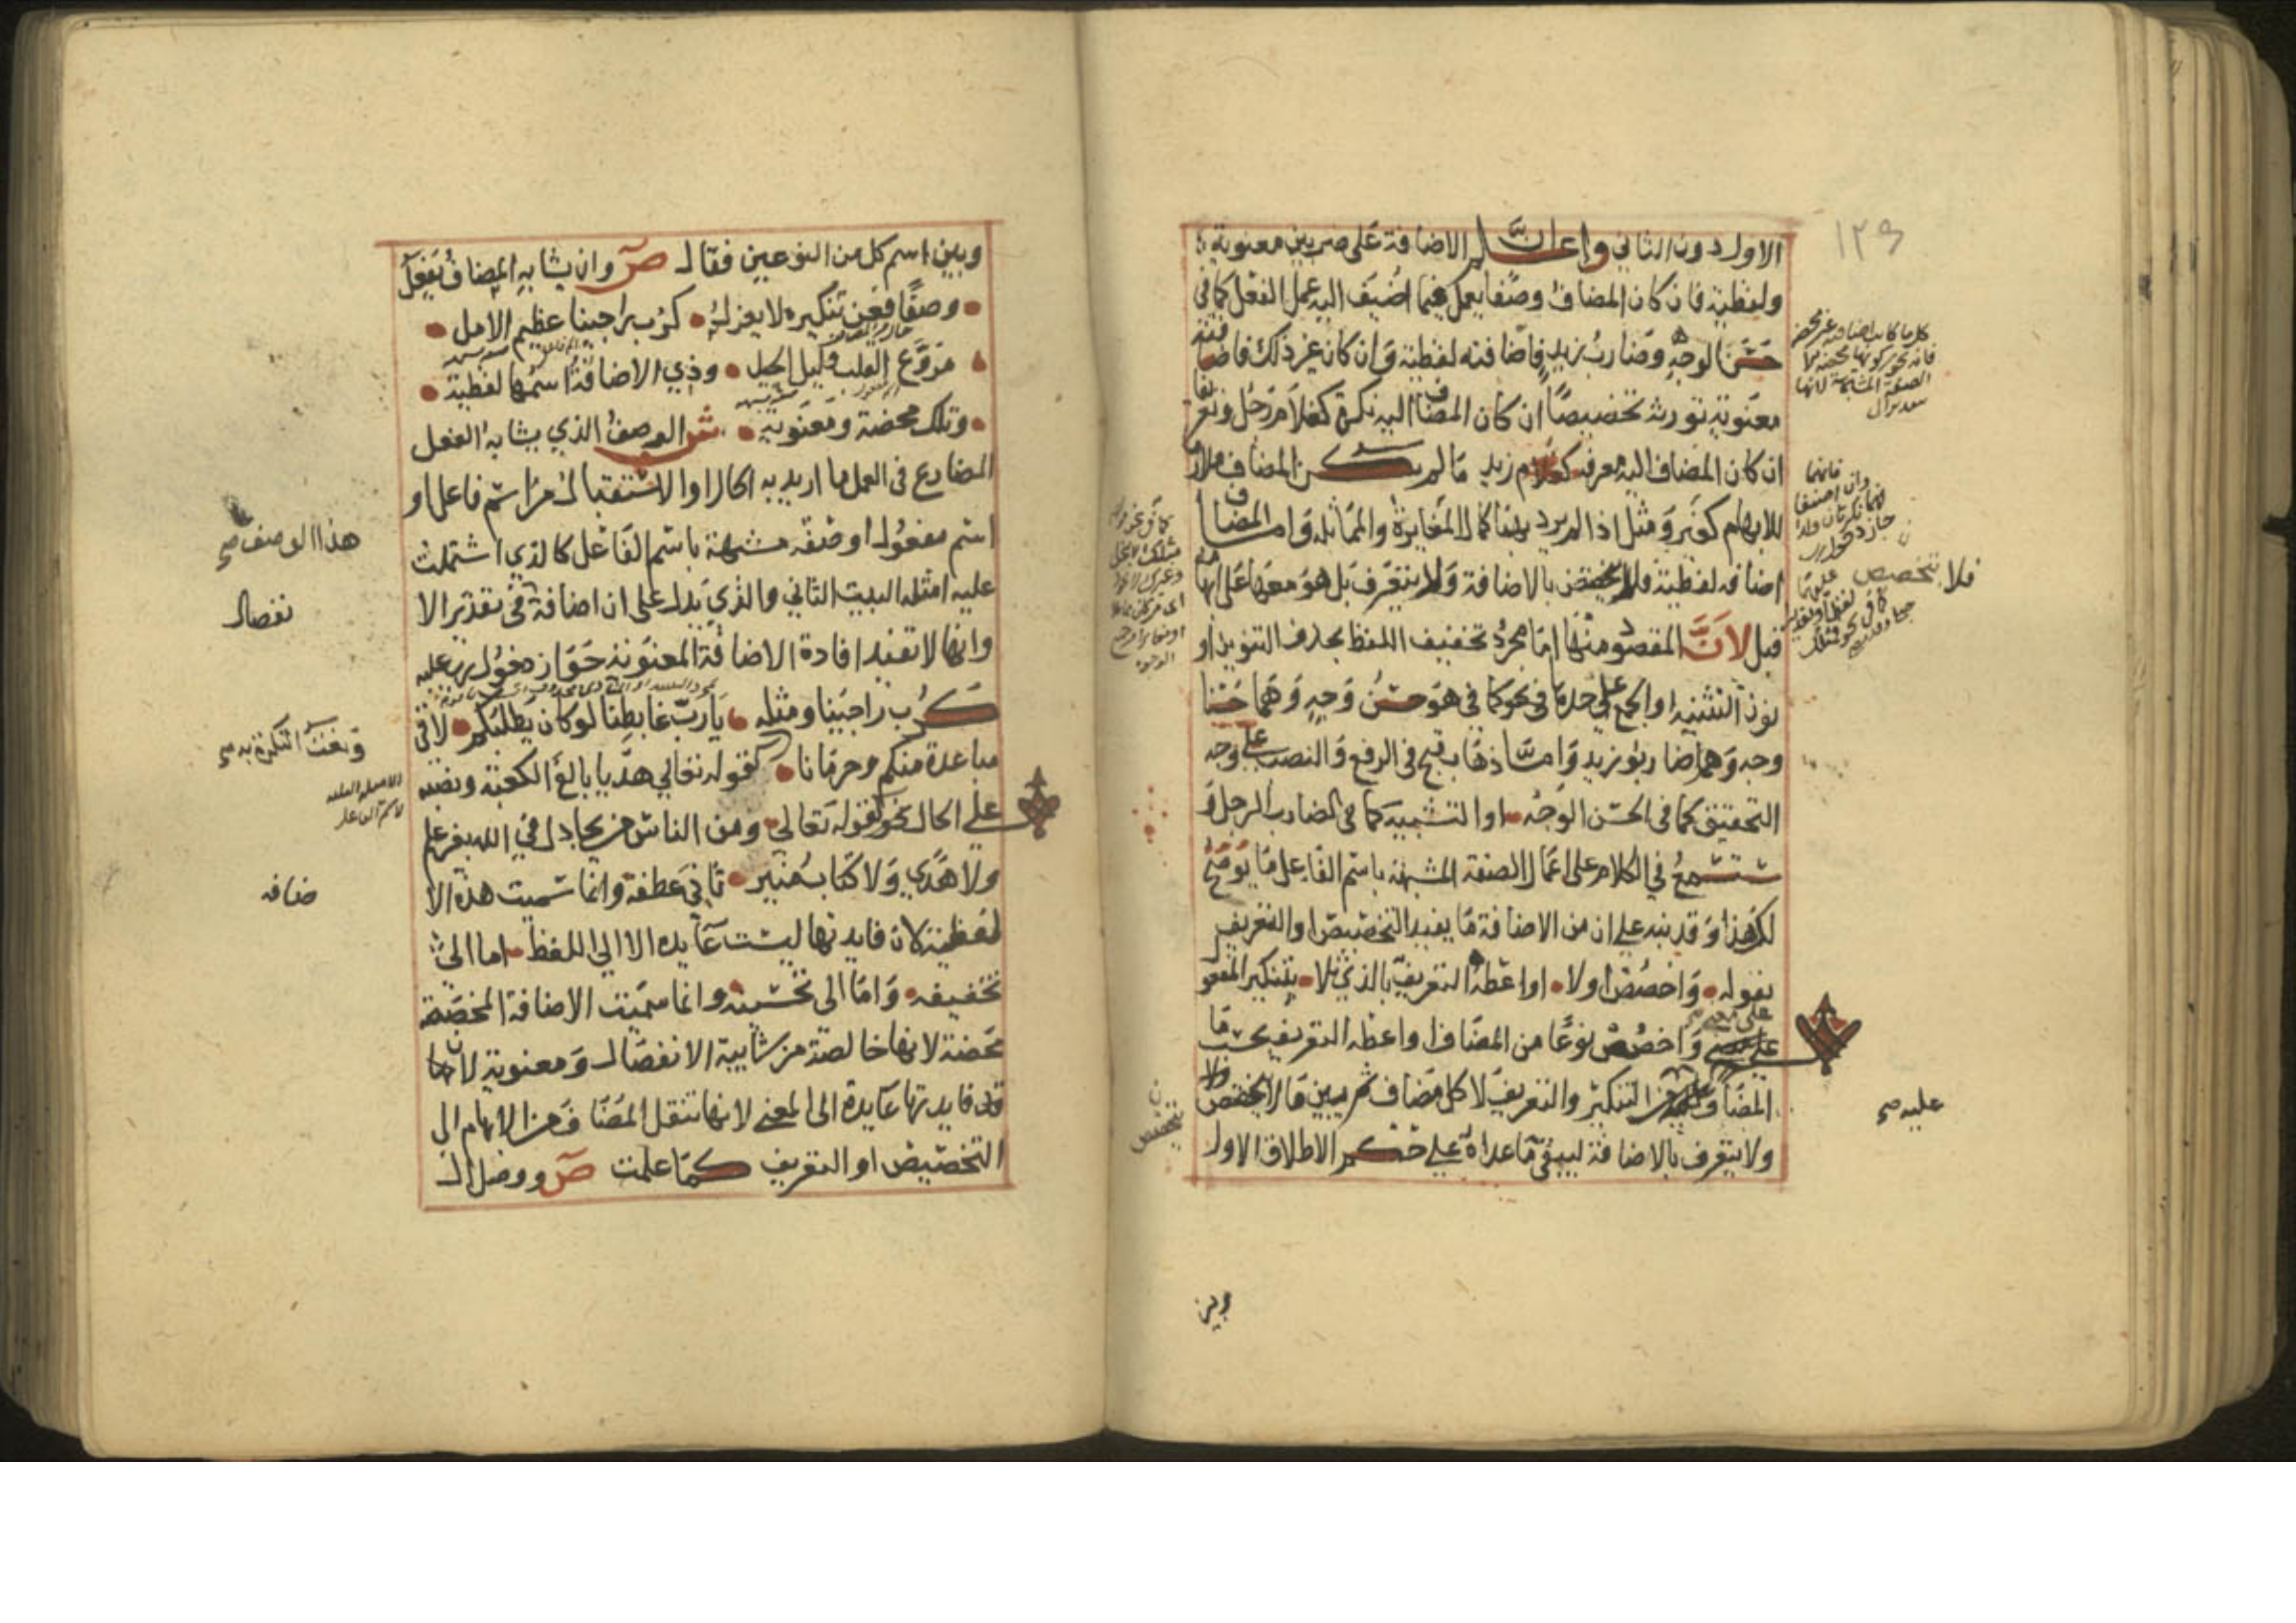 ١٢٩
الاول دون الثاني واعلم ان الاضافة على ضربين معنوية
ولفظية فان كان المضاف وصفا يعمل فيما اضيف اليه عمل الفعل كما في
حسن الوجه وضارب زيد فاضافته لفظية وان كان غير ذلك فاضافته
معنوية تورث تخصيصا ان كان المضاف اليه نكرة كغلام رجل وتعريفا
ان كان المضاف اليه معرفة كغلام زيد ما لم يكن المضاف ملازما
للابهام كغير ومثل اذا لم يرد بهما كمال المغايرة والمماثلة واما المضاف
اضافة لفظية فلا يتخصص بالاضافة ولا يتعرف بل هو معها على ابهامه
قبل لان المقصود منها اما مجرد تخفيف اللفظ بحذف التنوين او
نون التثنية او الجمع على حدها في نحو كما في هو حسن وجه وهما حسنا
وجه وهما ضاربو زيد واما اذهاب قبح في الرفع والنصب على وجه
التحقيق كما في الحسن الوجه او التشبيه كما في الضارب الرجل و
ستسمع في الكلام على اعمال الصفة المشبهة باسم الفاعل ما يوضح
لك هذا وقد نبه على ان من الاضافة ما يفيد التخصيص او التعريف
بقوله واخصص اولا او اعطه التعريف بالذي تلا بتنكير المفعول
على معنى واخصص نوعا من المضاف او اعطه التعريف بحسب ما
المضاف عليه من التنكير والتعريف لا كل مضاف ثم يبين ما لا يتخصص
ولا يتعرف بالاضافة ليبقى ما عداه على حكم الاطلاق الاول
فلا يتخصص
عليه صح
يتخصص
وبين
وبين اسم كل من النوعين فقال ص وان يشابه المضاف يفعل
وصفا فعن تنكيره لا يعزل كرب راجينا عظيم الامل
مروع القلب قليل الحيل وذي الاضافة اسمها لفظية
وتلك محضة ومعنوية ش الوصف الذي يشابه الفعل
المضارع في العمل ما اريد به الحال او الاستقبال من اسم فاعل او
اسم مفعول او صفة مشبهة باسم الفاعل كالذي اشتملت
عليه امثلة البيت الثاني والذي يدل على ان اضافة في تقدير الا
وانها لا تفيد افادة الاضافة المعنوية جواز دخول رب عليه
كرب راجينا ومثله يا رب غابطنا لو كان يطلبكم لاقى
مباعدة منكم وحرمانا كقوله تعالى هديا بالغ الكعبة ونصبه
على الحال نحو كقوله تعالى ومن الناس من يجادل في الله بغير علم
ولا هدى ولا كتاب منير ثاني عطفه وانما سميت هذه الا
لفظية لان فايدتها ليست عايده الا الى اللفظ اما الى
تخفيفه واما الى تحسينه وانما سميت الاضافة المخصصة
محضة لانها خالصة من شايبة الانفصال ومعنوية لانها
فايدتها عايدة الى المعنى لانها تنقل المضاف من الابهام الى
التخصيص او التعريف كما علمت ص ووصل ال
هذا الوصف صح
نفصال
ونعت النكرة به صح
ضافه